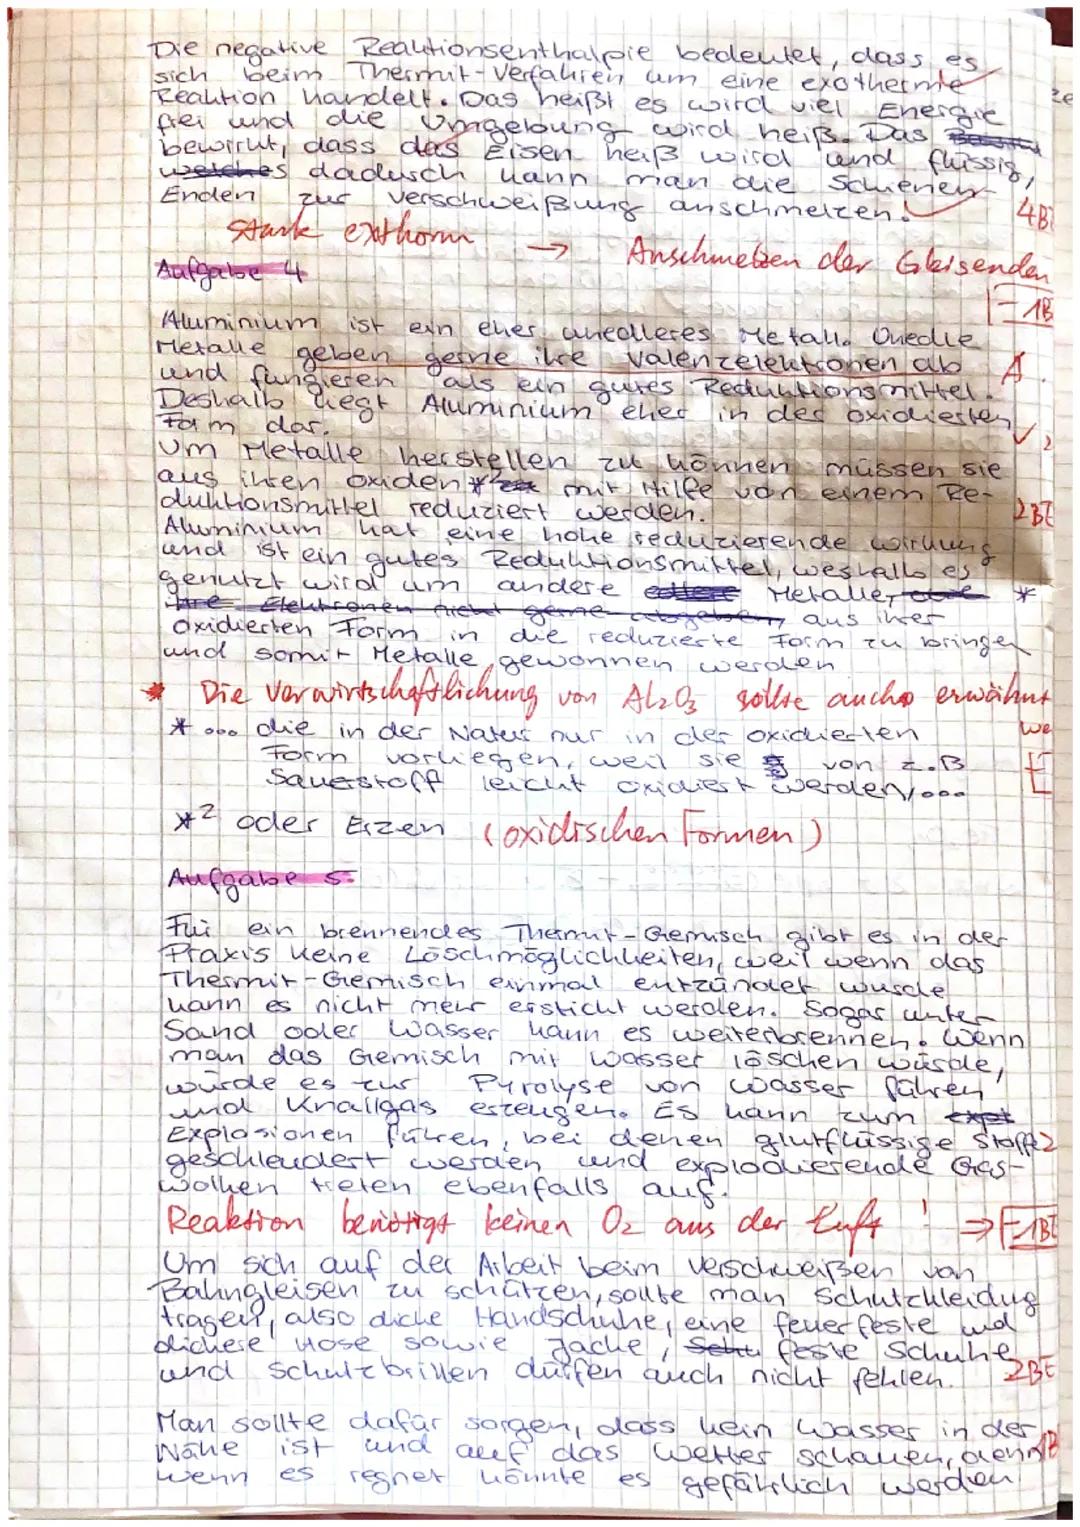 Die negative Reaktionsenthalpie bedeutet, dass es
sich beim Thermit-Verfahren um eine exotherme
Reaktion handelt. Das heißt es wird viel Energie
frei und die Umgebung wird heiß. Das
bewirkt, dass das Eisen heiß wird und flüssig,
welches dadurch kann man die Schienen-
Enden zur Verschweißung anschmelzen.
4BE
stark exotherm → Anschmelzen der Gleisenden
Aufgabe 4
-1B
Aluminium ist ein eher unedleres Metall. Unedle
Metalle geben gerne ihre Valenzelektronen ab
A.
und fungieren als ein gutes Reduktionsmittel.
Deshalb liegt Aluminium eher in der oxidierten
Form dar.
Um Metalle herstellen zu können müssen sie
aus ihren Oxiden *2 mit Hilfe von einem Re-
duktionsmittel reduziert werden.
2BE
Aluminium hat eine hohe reduzierende Wirkung
und ist ein gutes Reduktionsmittel, weshalb es
genutzt wird um andere edlere Metalle, *
ihre Elektronen nicht gerne abgeben, aus ihrer
oxidierten Form in die reduzierte Form zu bringen
und somit Metalle gewonnen werden
* Die Verwirtschaftlichung von Al2O3 sollte auch erwähnt
we
* ... die in der Natur nur in der oxidierten
Form vorliegen, weil sie von z.B
Sauerstoff leicht oxidiert werden, ...
*2 oder Erzen (oxidischen Formen)
Aufgabe 5
Für ein brennendes Thermit-Gemisch gibt es in der
Praxis keine Löschmöglichkeiten, weil wenn das
Thermit-Gemisch einmal entzündet wurde
kann es nicht mehr erstickt werden. Sogar unter
Sand oder Wasser kann es weiterbrennen. Wenn
man das Gemisch mit Wasser löschen würde,
würde es zur Pyrolyse von Wasser führen
und Knallgas erzeugen. Es kann zum
Explosionen führen, bei denen glutflüssige Stoffe
geschleudert werden und explodierende Gas-
wolken treten ebenfalls auf.
Reaktion benötigt keinen O2 aus der Luft! ⇒ -1BE
Um sich auf der Arbeit beim Verschweißen von
Bahngleisen zu schützen, sollte man Schutzkleidug
tragen, also dicke Handschuhe, eine feuerfeste und
dickere Hose sowie Jacke, feste Schuhe
und Schutzbrillen dürfen auch nicht fehlen.
2BE
Man sollte dafür sorgen, dass kein Wasser in der
Nähe ist und auf das Wetter schauen, denn
wenn es regnet könnte es gefährlich werden